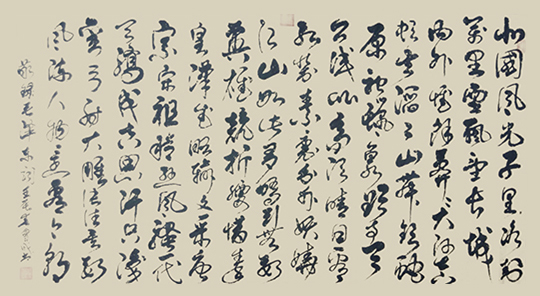 北國风光千里冰封
萬里雪飘望长城
内外惟餘莽莽大河上下
顿失滔滔山舞银蛇
原驰蜡象欲與天
公试比高须晴日看
红装素裹分外妖娆
江山如此多娇引無數
英雄竞折腰惜秦
皇漢武略输文采唐
宗宋祖稍逊风骚一代
天骄成吉思汗只識
弯弓射大雕俱往矣數
风流人物還看今朝
敬錄毛澤东词